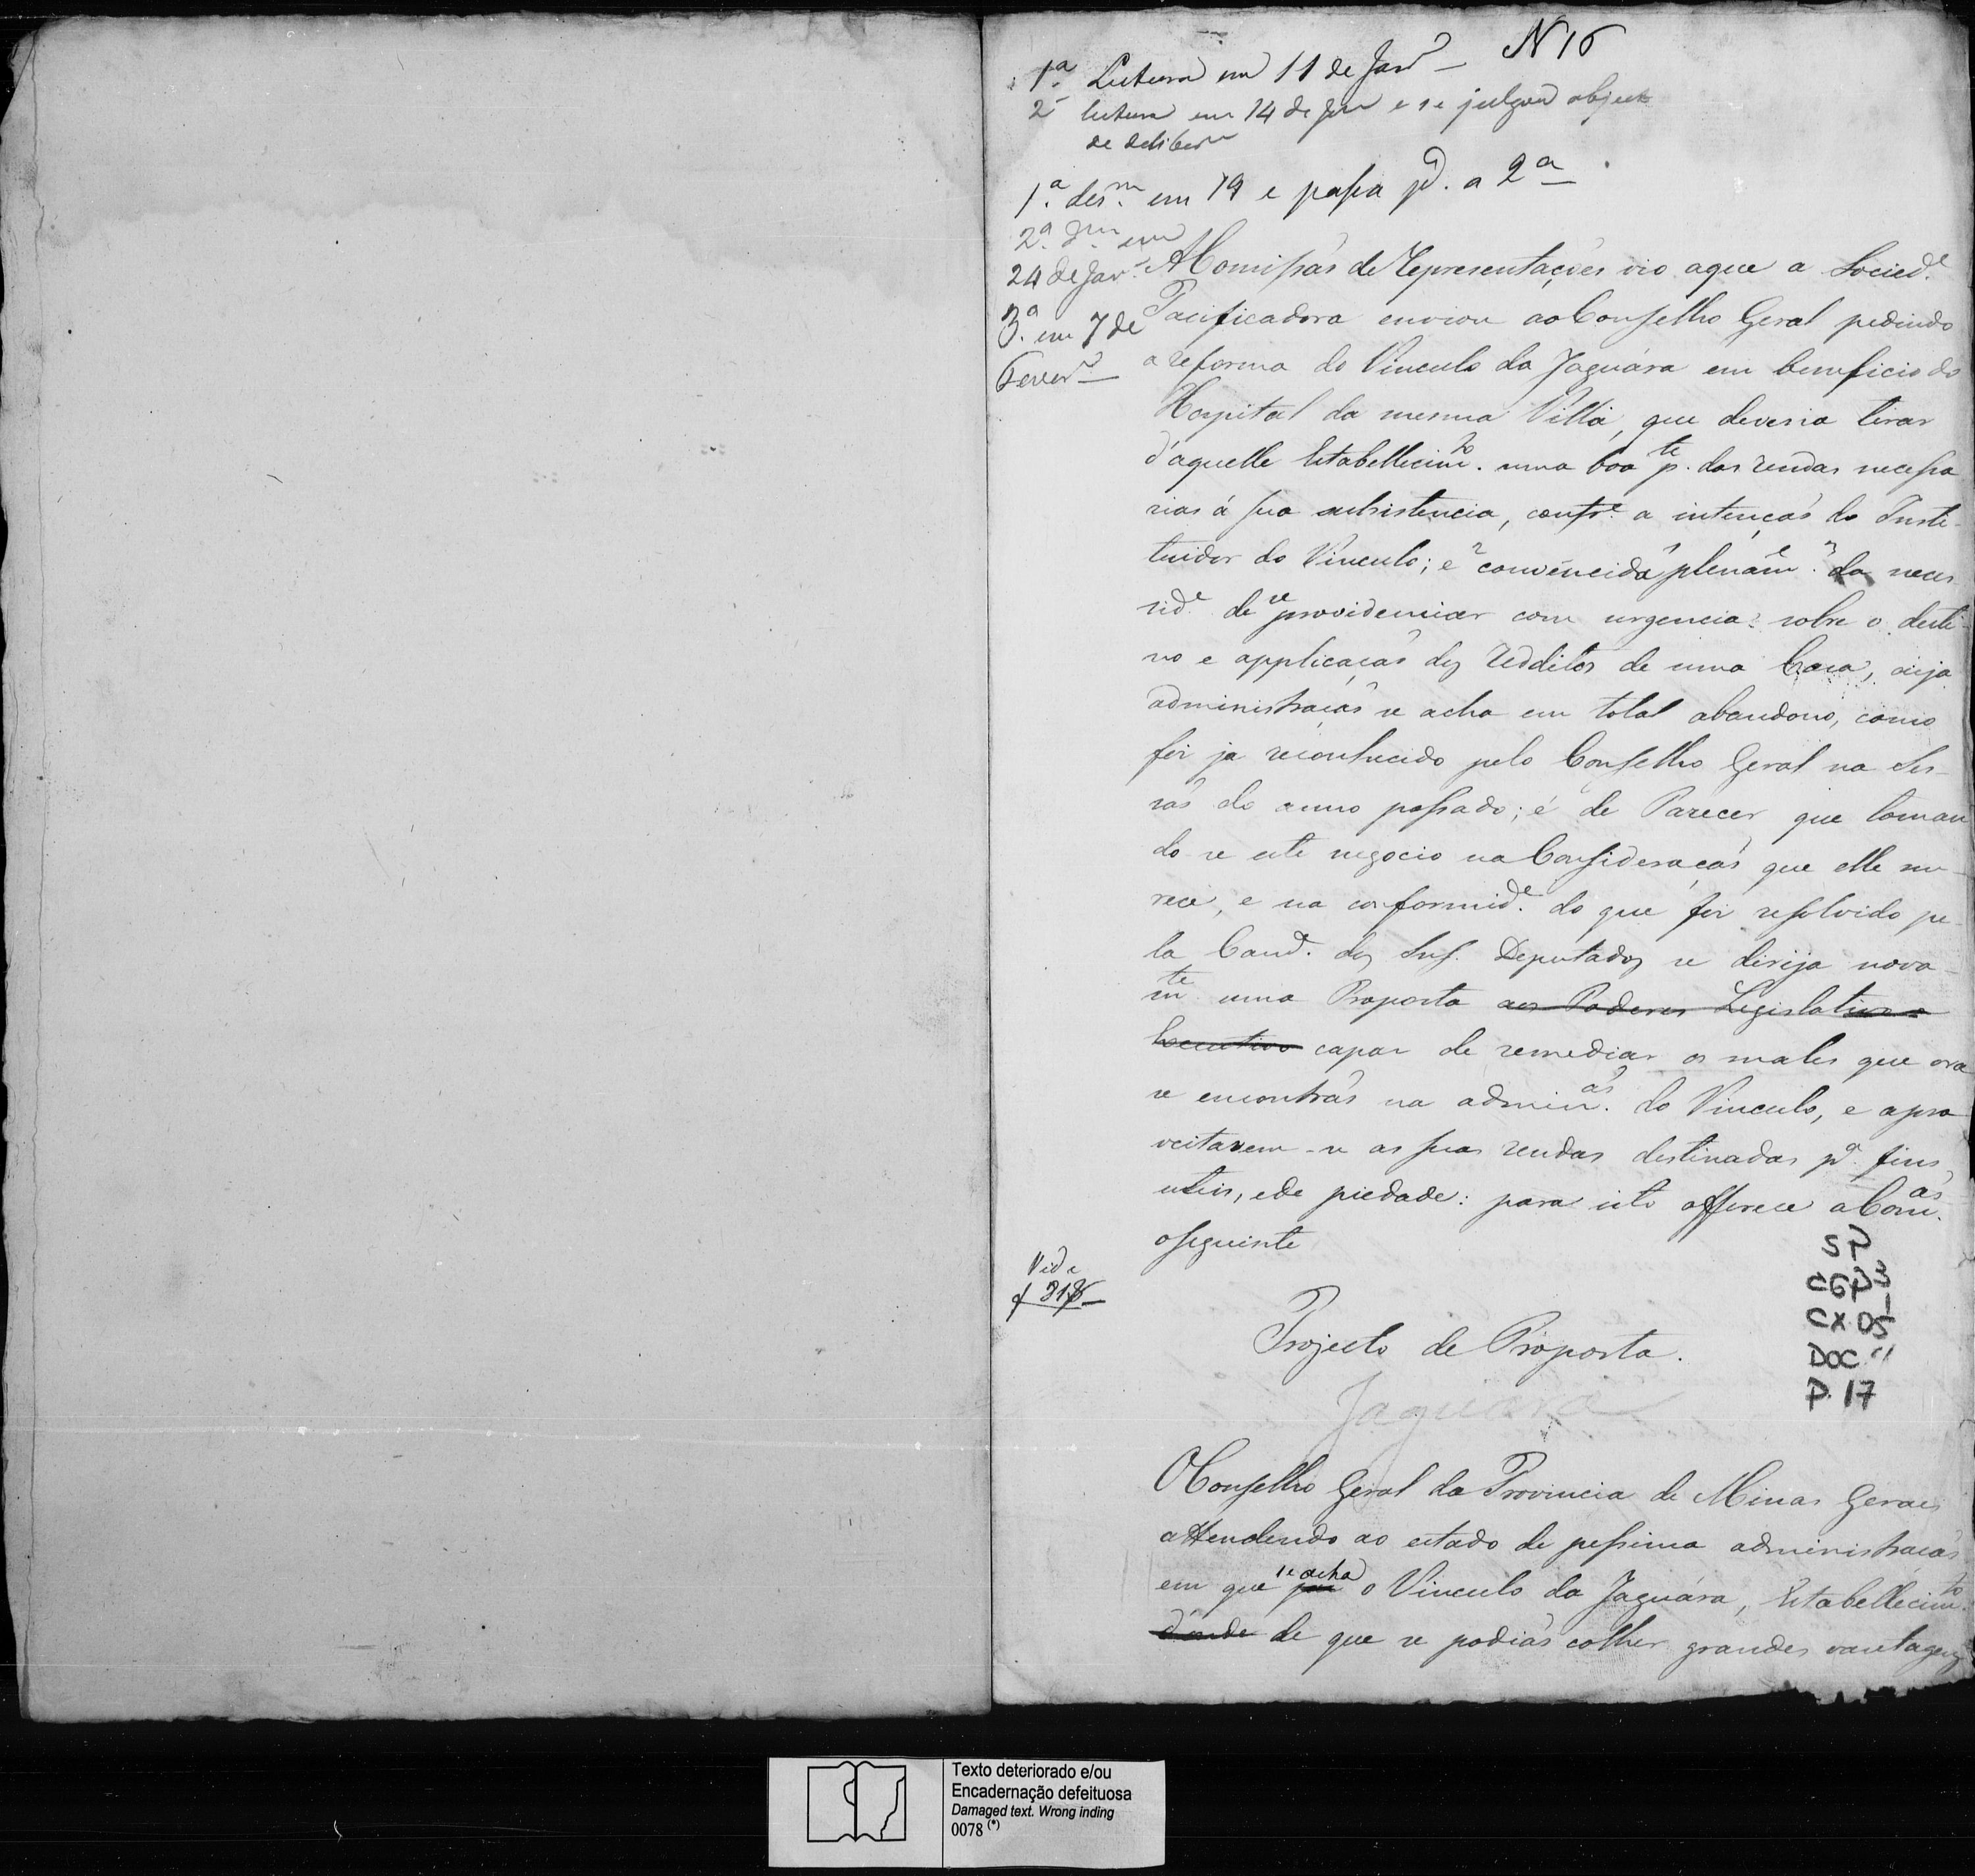 N 16
1ª Leitura em 11 de Janrº
2ª leitura em 14 de Janr e se julgou objecto
de deliberm
1ª. desm. em 19 e passa pª. a 2ª
2ª. dm. em
24 de Janrº
3ª. em 7 de
Feverº
A Comissaõ de Representações vio a que a Sociedᵉ.
Pacificadora enviou ao Conselho Geral pedindo
a reforma do Vinculo da Jaguára em beneficio do
Hospital da mesma Villa, que deveria tirar
d'aquelle Estabellecimto. uma boa pte. das rendas necessa
rias á sua subsistencia, confe. a intençaõ do Insti-
tuidor do Vinculo; e convencida plename. da neces
sidᵉ. de se providenciar com urgencia sobre o desti-
no e applicaçaõ dos redditos de uma Caza, cuja
administraçaõ se acha em total abandono, como
foi ja reconhecido pelo Conselho Geral na Ses-
saõ do anno passado; é de Parecer que toman
do-se este negocio na Consideraçaõ que elle me-
rece, e na conformidᵉ. do que foi resolvido pe-
la Camª. dos Srs. Deputados se dirija nova-
mte. uma Proposta aos Poderes Legislativo e
Executivo capaz de remediar os males que ora
se encontraõ na adminaõ. do Vinculo, e apro
veitarem-se as suas rendas destinadas pª. fins
uteis, e de piedade: para isto offerece a Comaõ.
o seguinte
Vide
f 318
SP
CGP3
CX. 05
DOC. 11
P. 17
Projecto de Proposta.
Jaguara
O Conselho Geral da Provincia de Minas Geraes
attendendo ao estado de pessima administraçaõ
em que se acha o Vinculo da Jaguára, Estabellecimto.
d'onde de que se podiaõ colher grandes vantagens
Texto deteriorado e/ou
Encadernação defeituosa
Damaged text. Wrong inding
0078 (*)